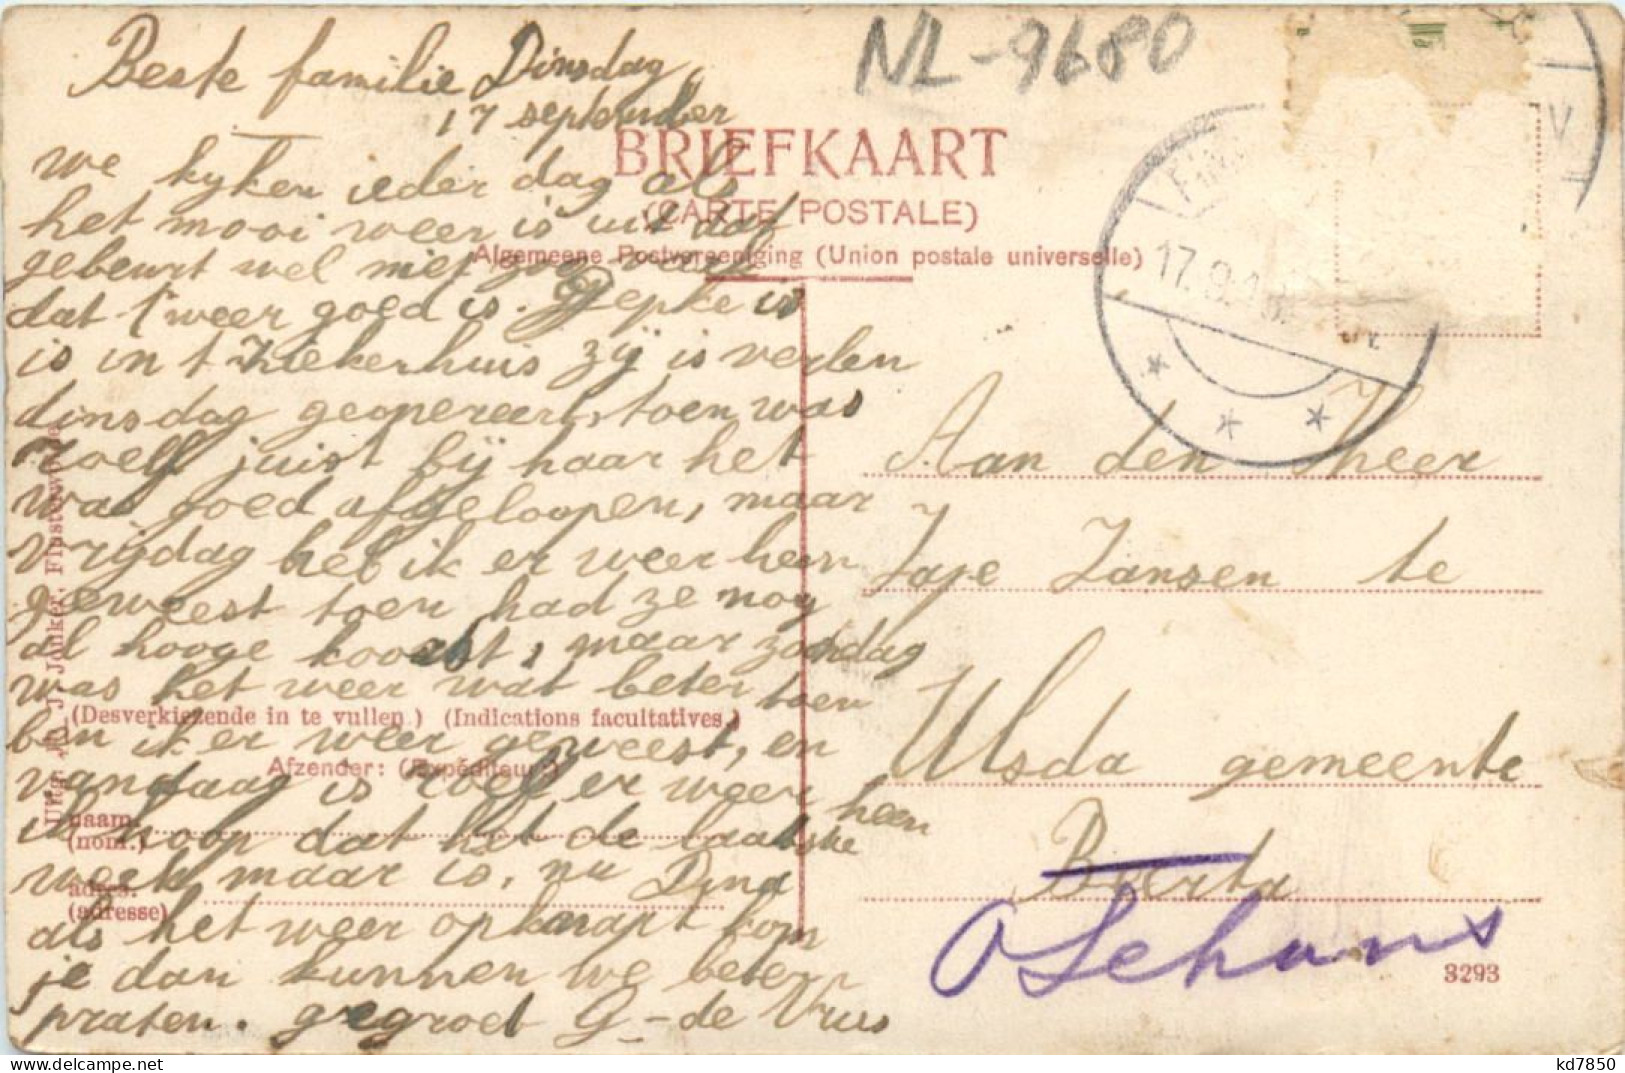 NL-9680
Beste familie Dinsdag
17 september
BRIEFKAART
(CARTE POSTALE)
Algemeene Postvereeniging (Union postale universelle)
we kyken ieder dag als
het mooi weer is uit dat
gebeurt wel niet veel
dat t weer goed is. Jepke is
is in t Ziekerhuis zij is verlen
dinsdag geopereert, toen was
Roelf juist bij haar het
was goed afgeloopen, maar
vrijdag heb ik er weer heen
geweest toen had ze nog
al hooge koorst, maar zondag
was het weer wat beter toen
ben ik er weer geweest, en
vandaag is roelf er weer heen
ik hoop dat het de laatste
week maar is, nu Dina
als het weer opknapt kom
je dan kunnen we beter
praten. gegroet G-de Vries
(Desverkiezende in te vullen.) (Indications facultatives.)
Afzender: (Expéditeur)
naam.
(nom.)
adres.
(adresse)
Uitg. J. Jonker, Finsterwolde
17.9.1
Aan den Heer
Jansen te
Ulsda gemeente
Beerta
O Schans
3293
kd7850